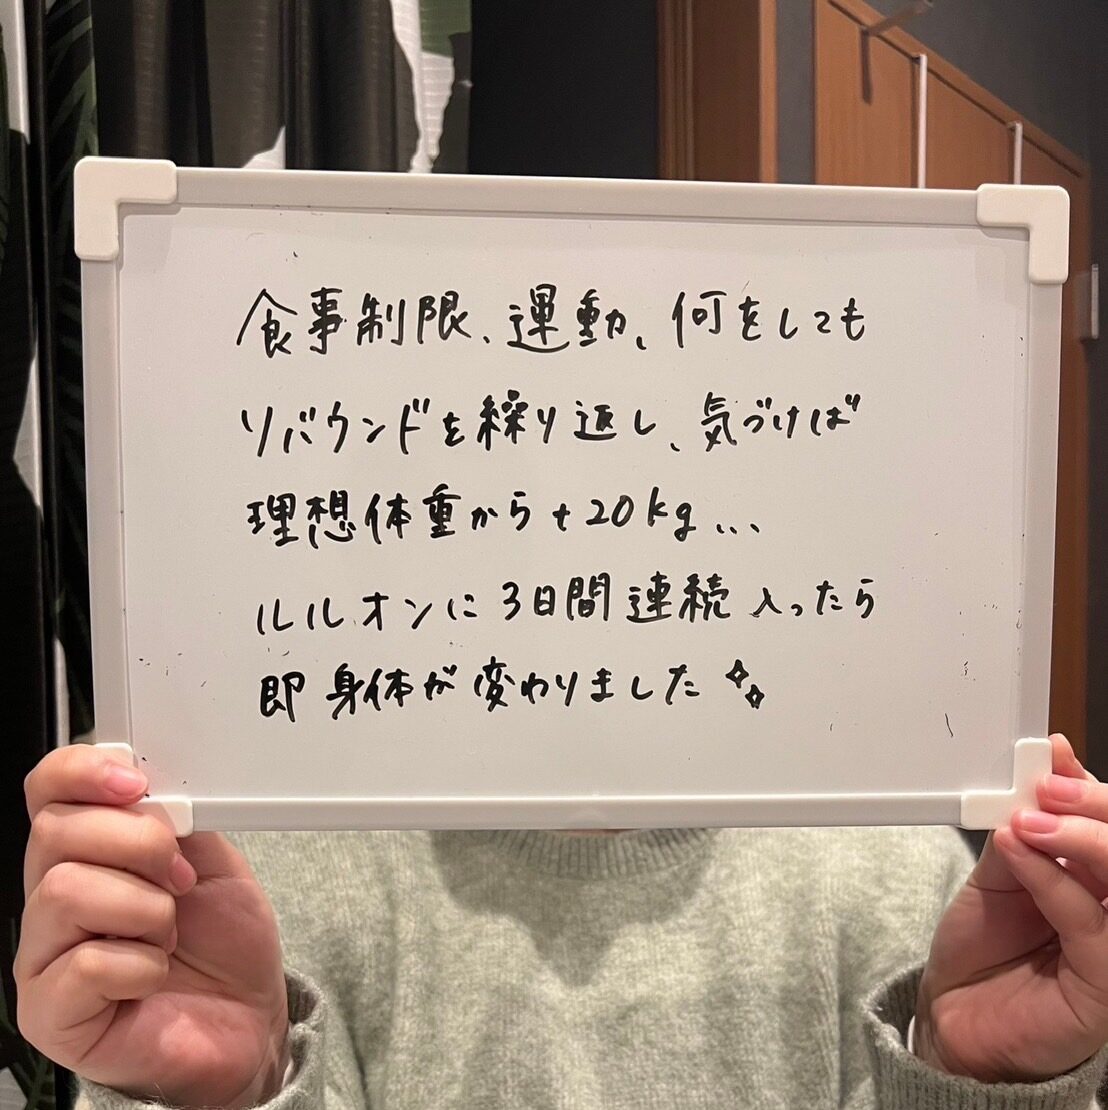 食事制限、運動、何をしても
リバウンドを繰り返し、気づけば
理想体重から+20kg...
ルルオンに3日間連続入ったら
即身体が変わりました✨